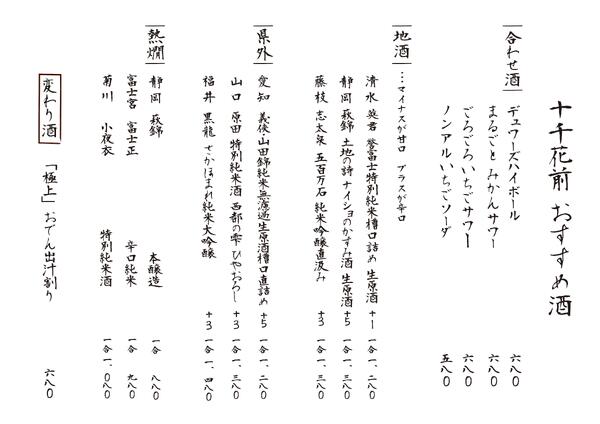 十千花前 おすすめ酒
合わせ酒
デュワーズハイボール 六八〇
まるごとみかんサワー 六八〇
ごろごろいちごサワー 六八〇
ノンアルいちごソーダ 五八〇
地酒
…マイナスが甘口 プラスが辛口
清水 英君 誉富士特別純米槽口詰め 生原酒 +1 一合 一、二八〇
静岡 萩錦 土地の詩 ナイショのかすみ酒 生原酒 +5 一合 一、三八〇
藤枝 志太泉 五百万石 純米吟醸直汲み +3 一合 一、三八〇
県外
愛知 義侠・山田錦純米無濾過生原酒槽口直詰め +5 一合 一、二八〇
山口 原田 特別純米酒 西都の雫 ひやおろし +3 一合 一、三八〇
福井 黒龍 さかほまれ純米大吟醸 +3 一合 一、四八〇
熱燗
静岡 萩錦 本醸造 一合 八八〇
富士宮 富士正 辛口純米 一合 九八〇
菊川 小夜衣 特別純米酒 一合 一、〇八〇
変わり酒
「極上」おでん出汁割り 六八〇